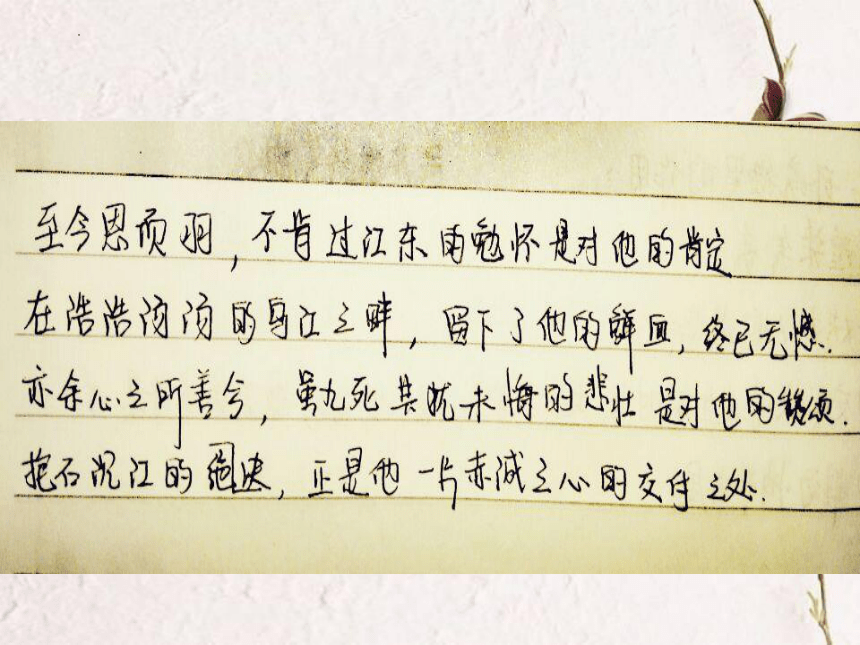 至今思项羽，不肯过江东的勉怀是对他的肯定
在浩浩汤汤的乌江之畔，留下了他的鲜血，终已无憾.
亦余心之所善兮，虽九死其犹未悔的悲壮是对他的颂.
抱石沉江的绝决，正是他一片赤诚之心的交付之处.